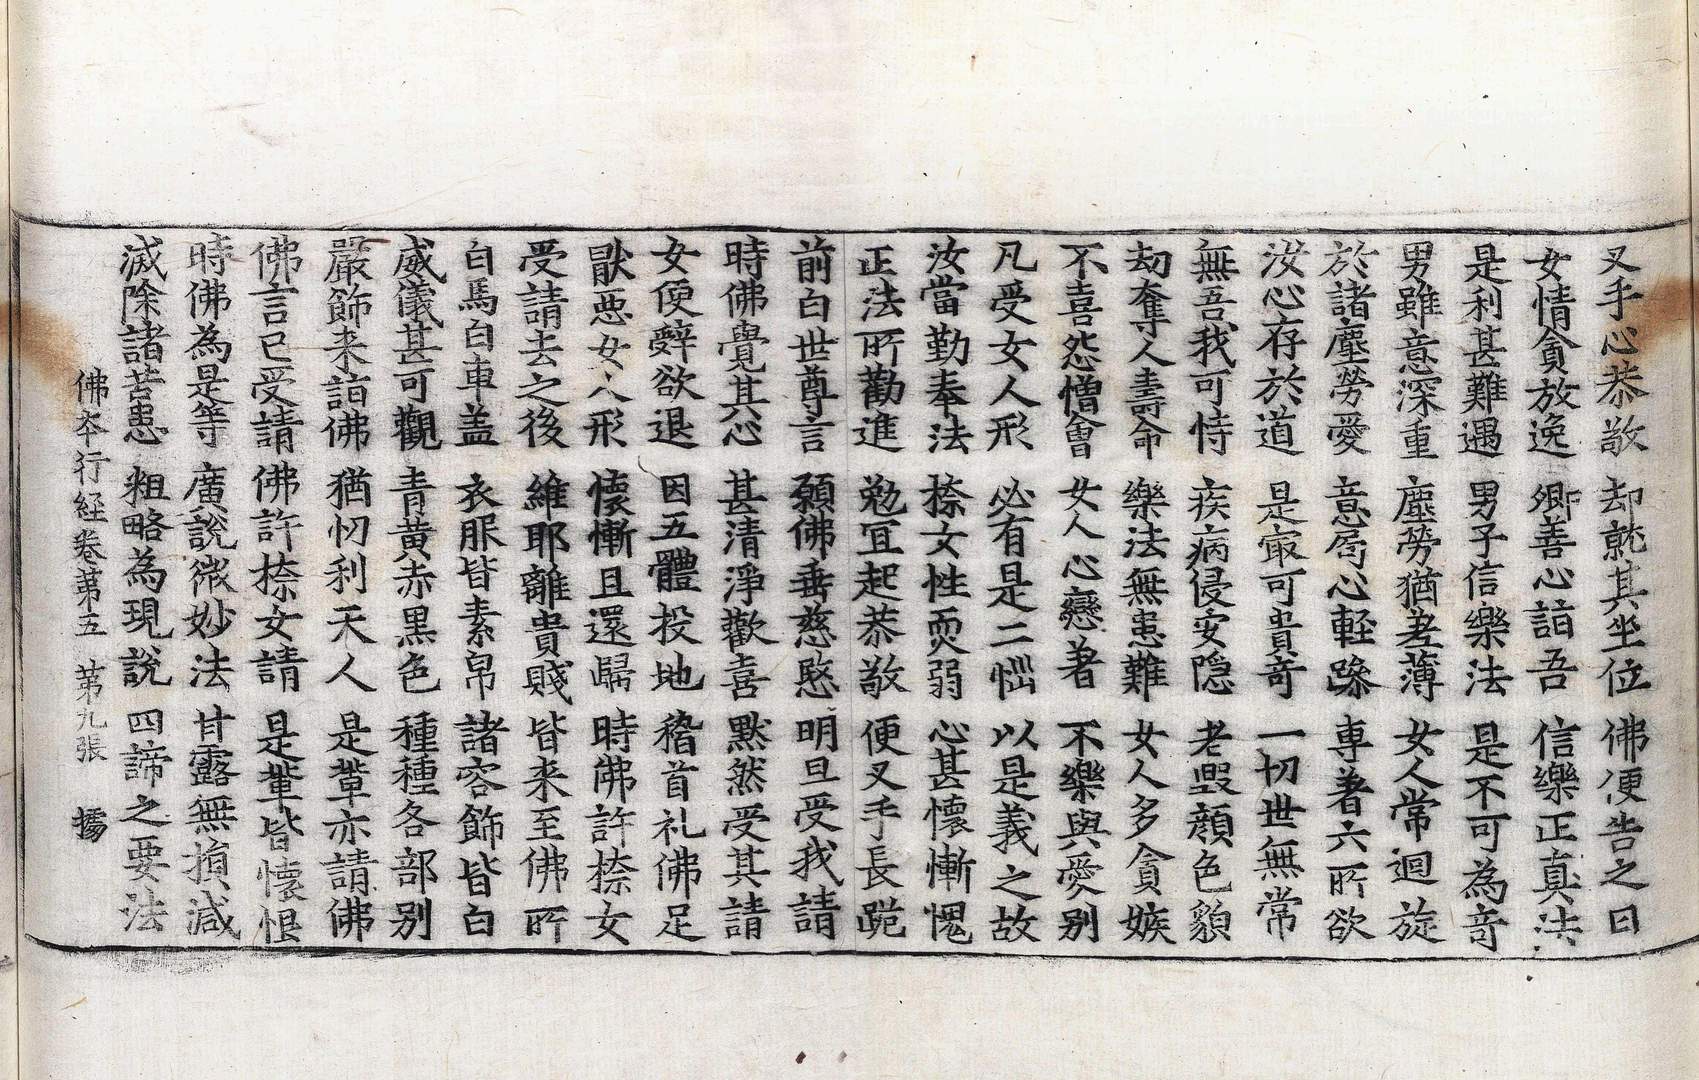 叉手心恭敬 却就其坐位 佛便告之曰
女情貪放逸 卿善心詣吾 信樂正真法
是利甚難遇 男子信樂法 是不可為奇
男雖意深重 塵勞猶差薄 女人常迴旋
於諸塵勞愛 意局心輕躁 專著六所欲
汝心存於道 是㝡可貴奇 一切世無常
無吾我可恃 疾病侵安隱 老毀顏色貌
劫奪人壽命 樂法無患難 女人多貪嫉
不喜怨憎會 女人心戀著 不樂與愛別
凡受女人形 必有是二惱 以是義之故
汝當勤奉法 㮈女性耎弱 心甚懷慚愧
正法所勸進 勉冝起恭敬 便叉手長跪
前白世尊言 願佛垂慈愍 明旦受我請
時佛覺其心 甚清淨歡喜 默然受其請
女便辭欲退 因五體投地 稽首礼佛足
猒惡女人形 懷慚且還歸 時佛許㮈女
受請去之後 維耶離貴賤 皆来至佛所
白馬白車盖 衣服皆素帛 諸容飾皆白
威儀甚可觀 青黃赤黑色 種種各部別
嚴飾来詣佛 猶忉利天人 是輩亦請佛
佛言已受請 佛許㮈女請 是輩皆懷恨
時佛為是等 廣說微妙法 甘露無損減
滅除諸苦患 粗略為現說 四諦之要法
佛夲行經卷苐五 苐九張